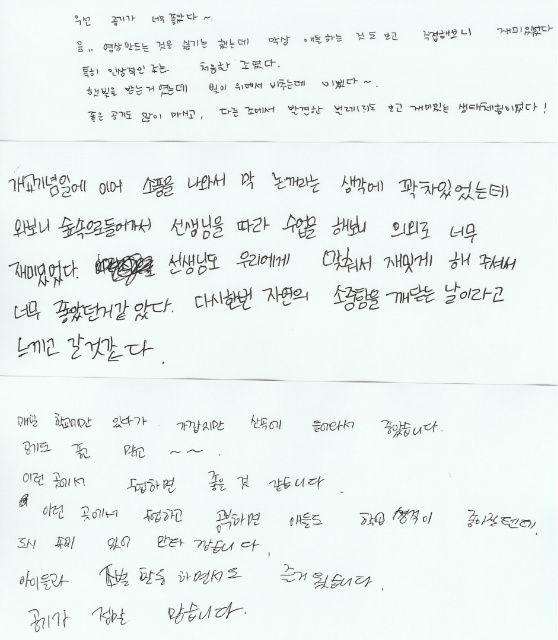 우선 공기가 너무 좋았다~
음.. 영상만드는 것은 쉽기는 했는데 막상 애들하는 것도 보고 직접해보니 재미있었다
특히 인상적인 는 처음한 조였다.
햇빛을 받는거였는데 빛이 위에서 비추는데 이뻤다~.
좋은 공기도 많이 마시고, 다른 조에서 발견한 벌레들도 보고 재미있는 생태체험이었다!
개교기념일에 이어 소풍을 나와서 막 논꺼라는 생각에 꽉차있었는데
와보니 숲속으로들어가서 선생님을 따라 수업을 해보니 의외로 너무
재미있었다. 선생님도 우리에게 맞춰서 재밌게 해 주셔서
너무 좋았던거같았다. 다시한번 자연의 소중함을 깨닫는 날이라고
느끼고 갈것같다.
매일 학교에만 있다가 가깝지만 산속에 들어와서 좋았습니다.
공기도 좋고 맑고 ~ ~ .
이런 곳에서 수업하면 좋을 것 같습니다.
이런 곳에서 수업하고 공부하면 애들도 학업 성적이 좋아질텐데.
도시 속에 있어 안타 깝습니다.
아이들과 활동 하면서도 즐거웠습니다.
공기가 정말 맑습니다.